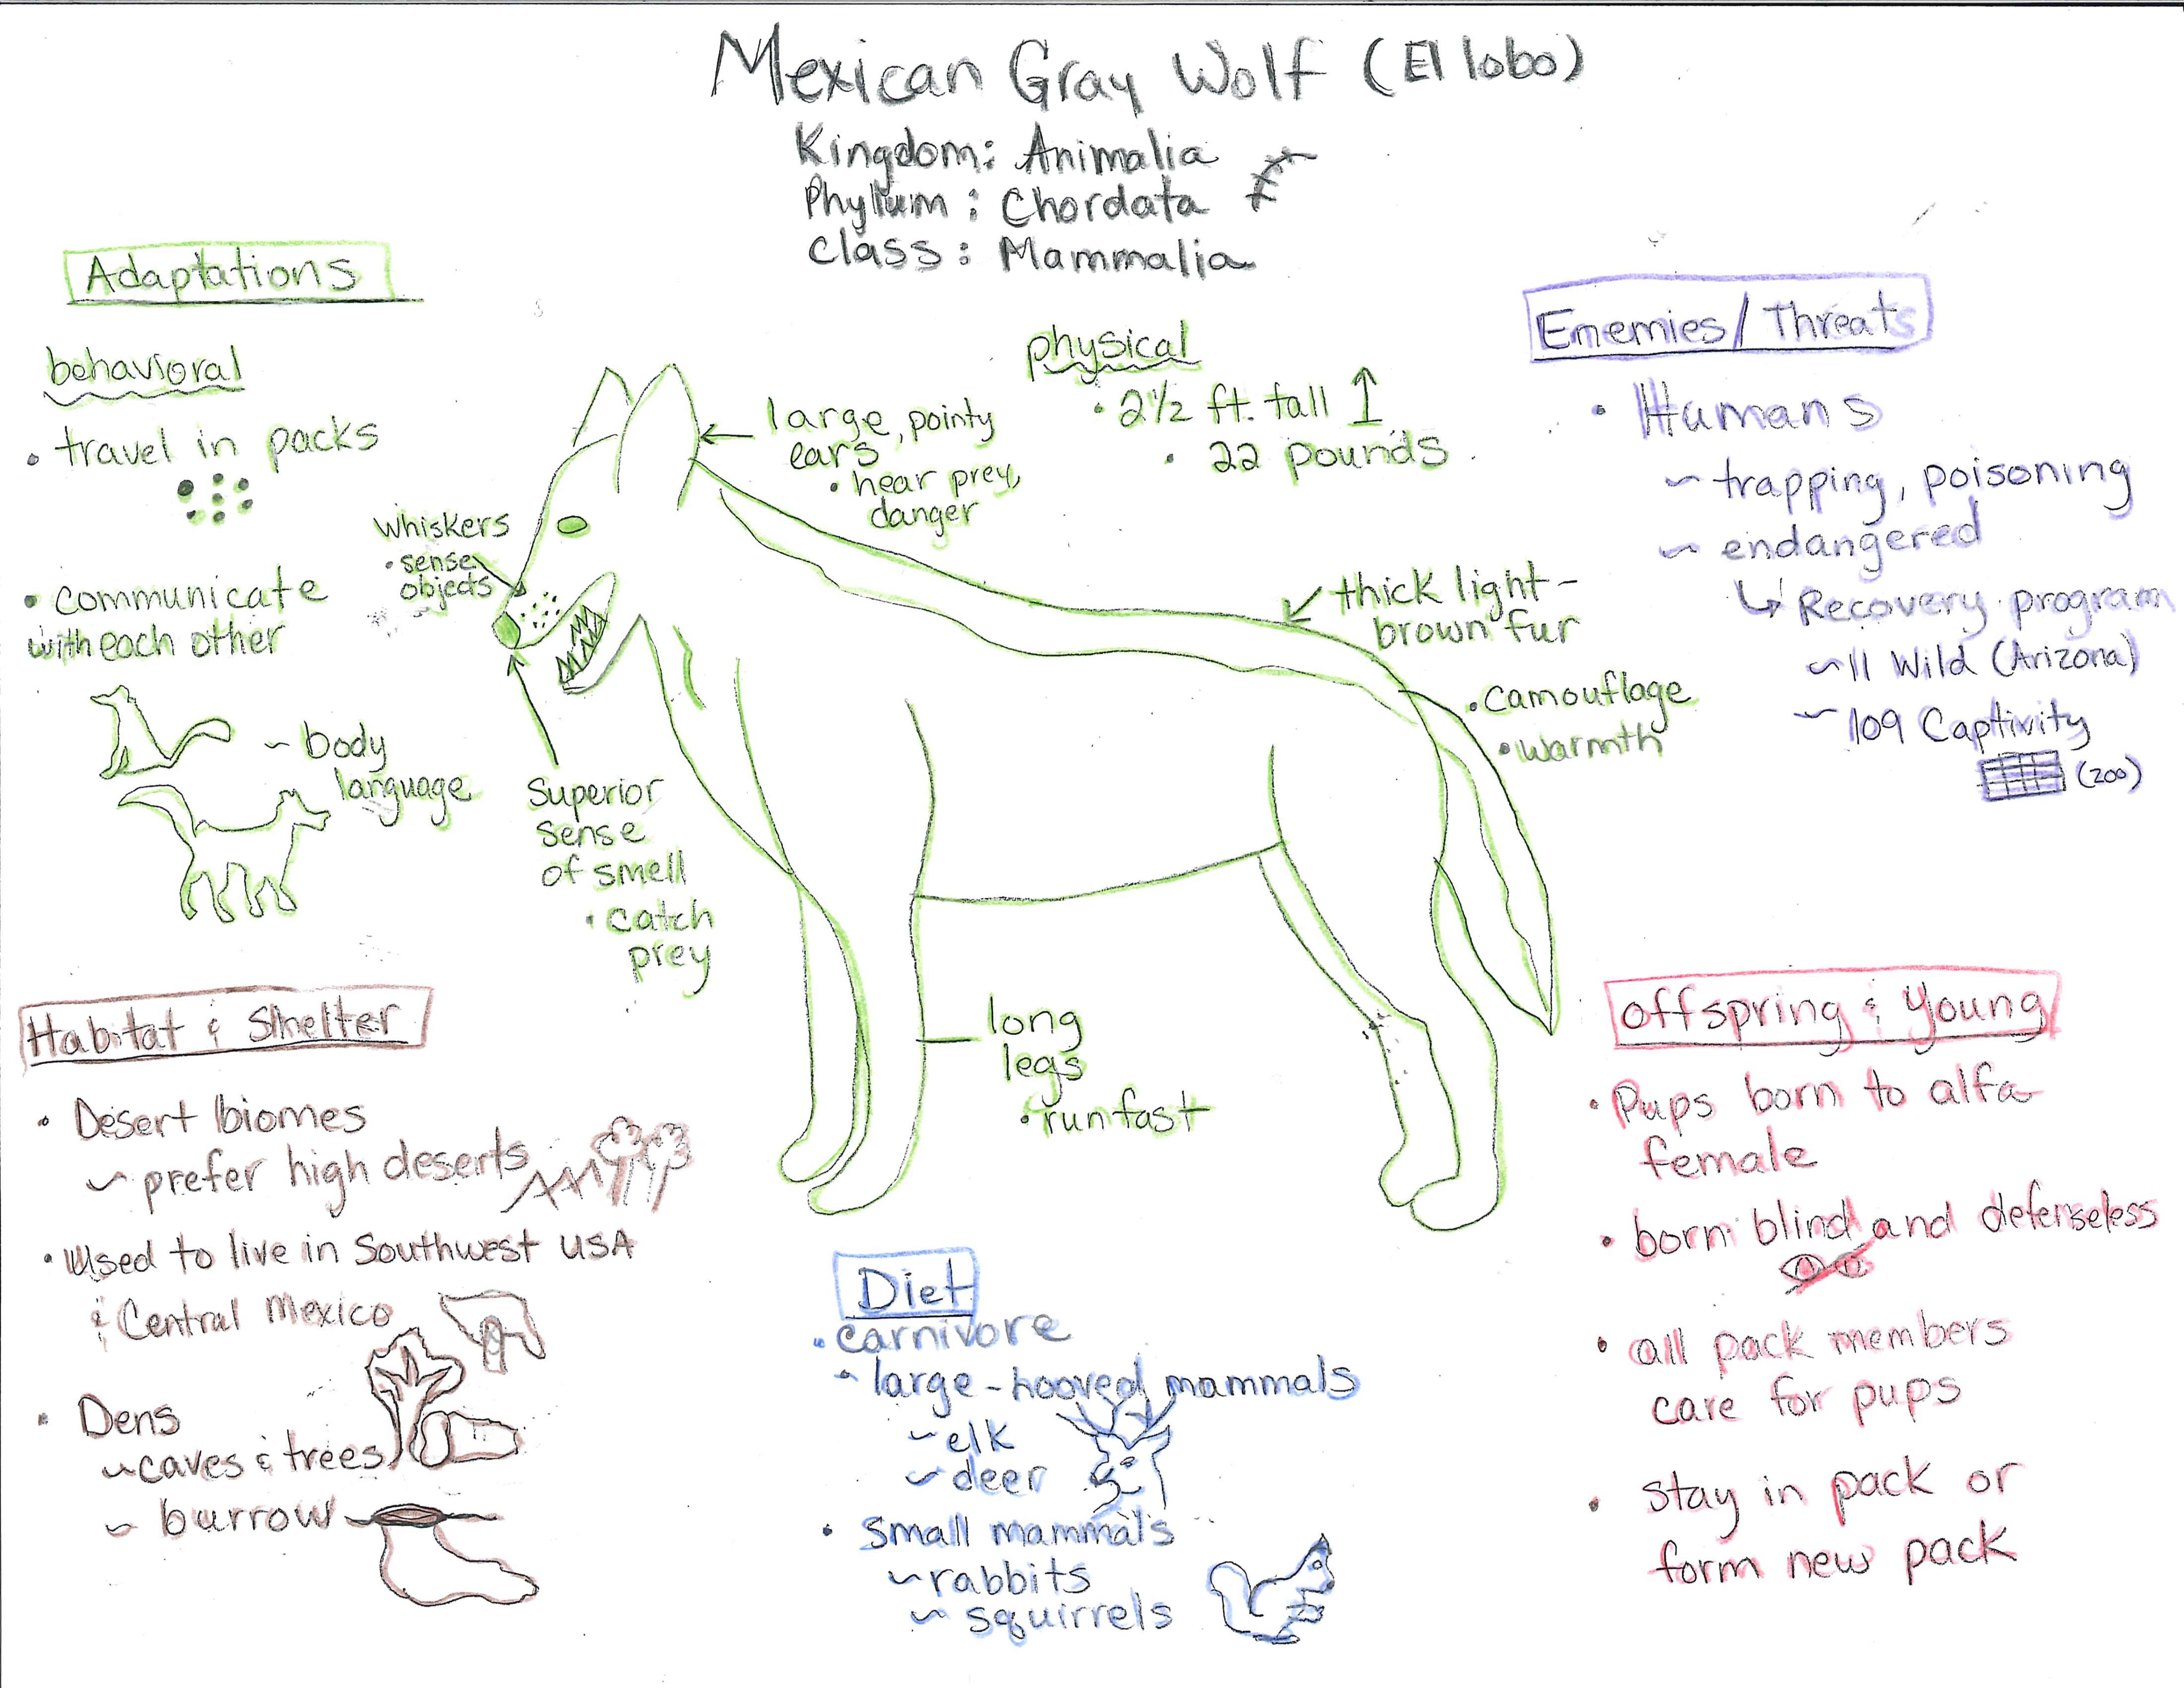 Mexican Gray Wolf (El lobo)
Kingdom: Animalia
Phylum: Chordata
Class: Mammalia
Adaptations
behavioral
• travel in packs
• communicate
with each other
~ body
language
whiskers
• sense
objects
Superior
sense
of smell
• catch
prey
large, pointy
ears
• hear prey,
danger
physical
• 2½ ft. tall
• 22 pounds
thick light-
brown fur
• camouflage
• warmth
long
legs
• run fast
Enemies/Threats
• Humans
~ trapping, poisoning
~ endangered
↳ Recovery program
~ 11 Wild (Arizona)
~ 109 Captivity
(zoo)
Habitat & Shelter
• Desert biomes
~ prefer high deserts
• Used to live in Southwest USA
& Central Mexico
• Dens
~ caves & trees
~ burrow
Diet
• carnivore
• large-hooved mammals
~ elk
~ deer
• small mammals
~ rabbits
~ squirrels
Offspring & Young
• Pups born to alfa
female
• born blind and defenseless
• all pack members
care for pups
• stay in pack or
form new pack